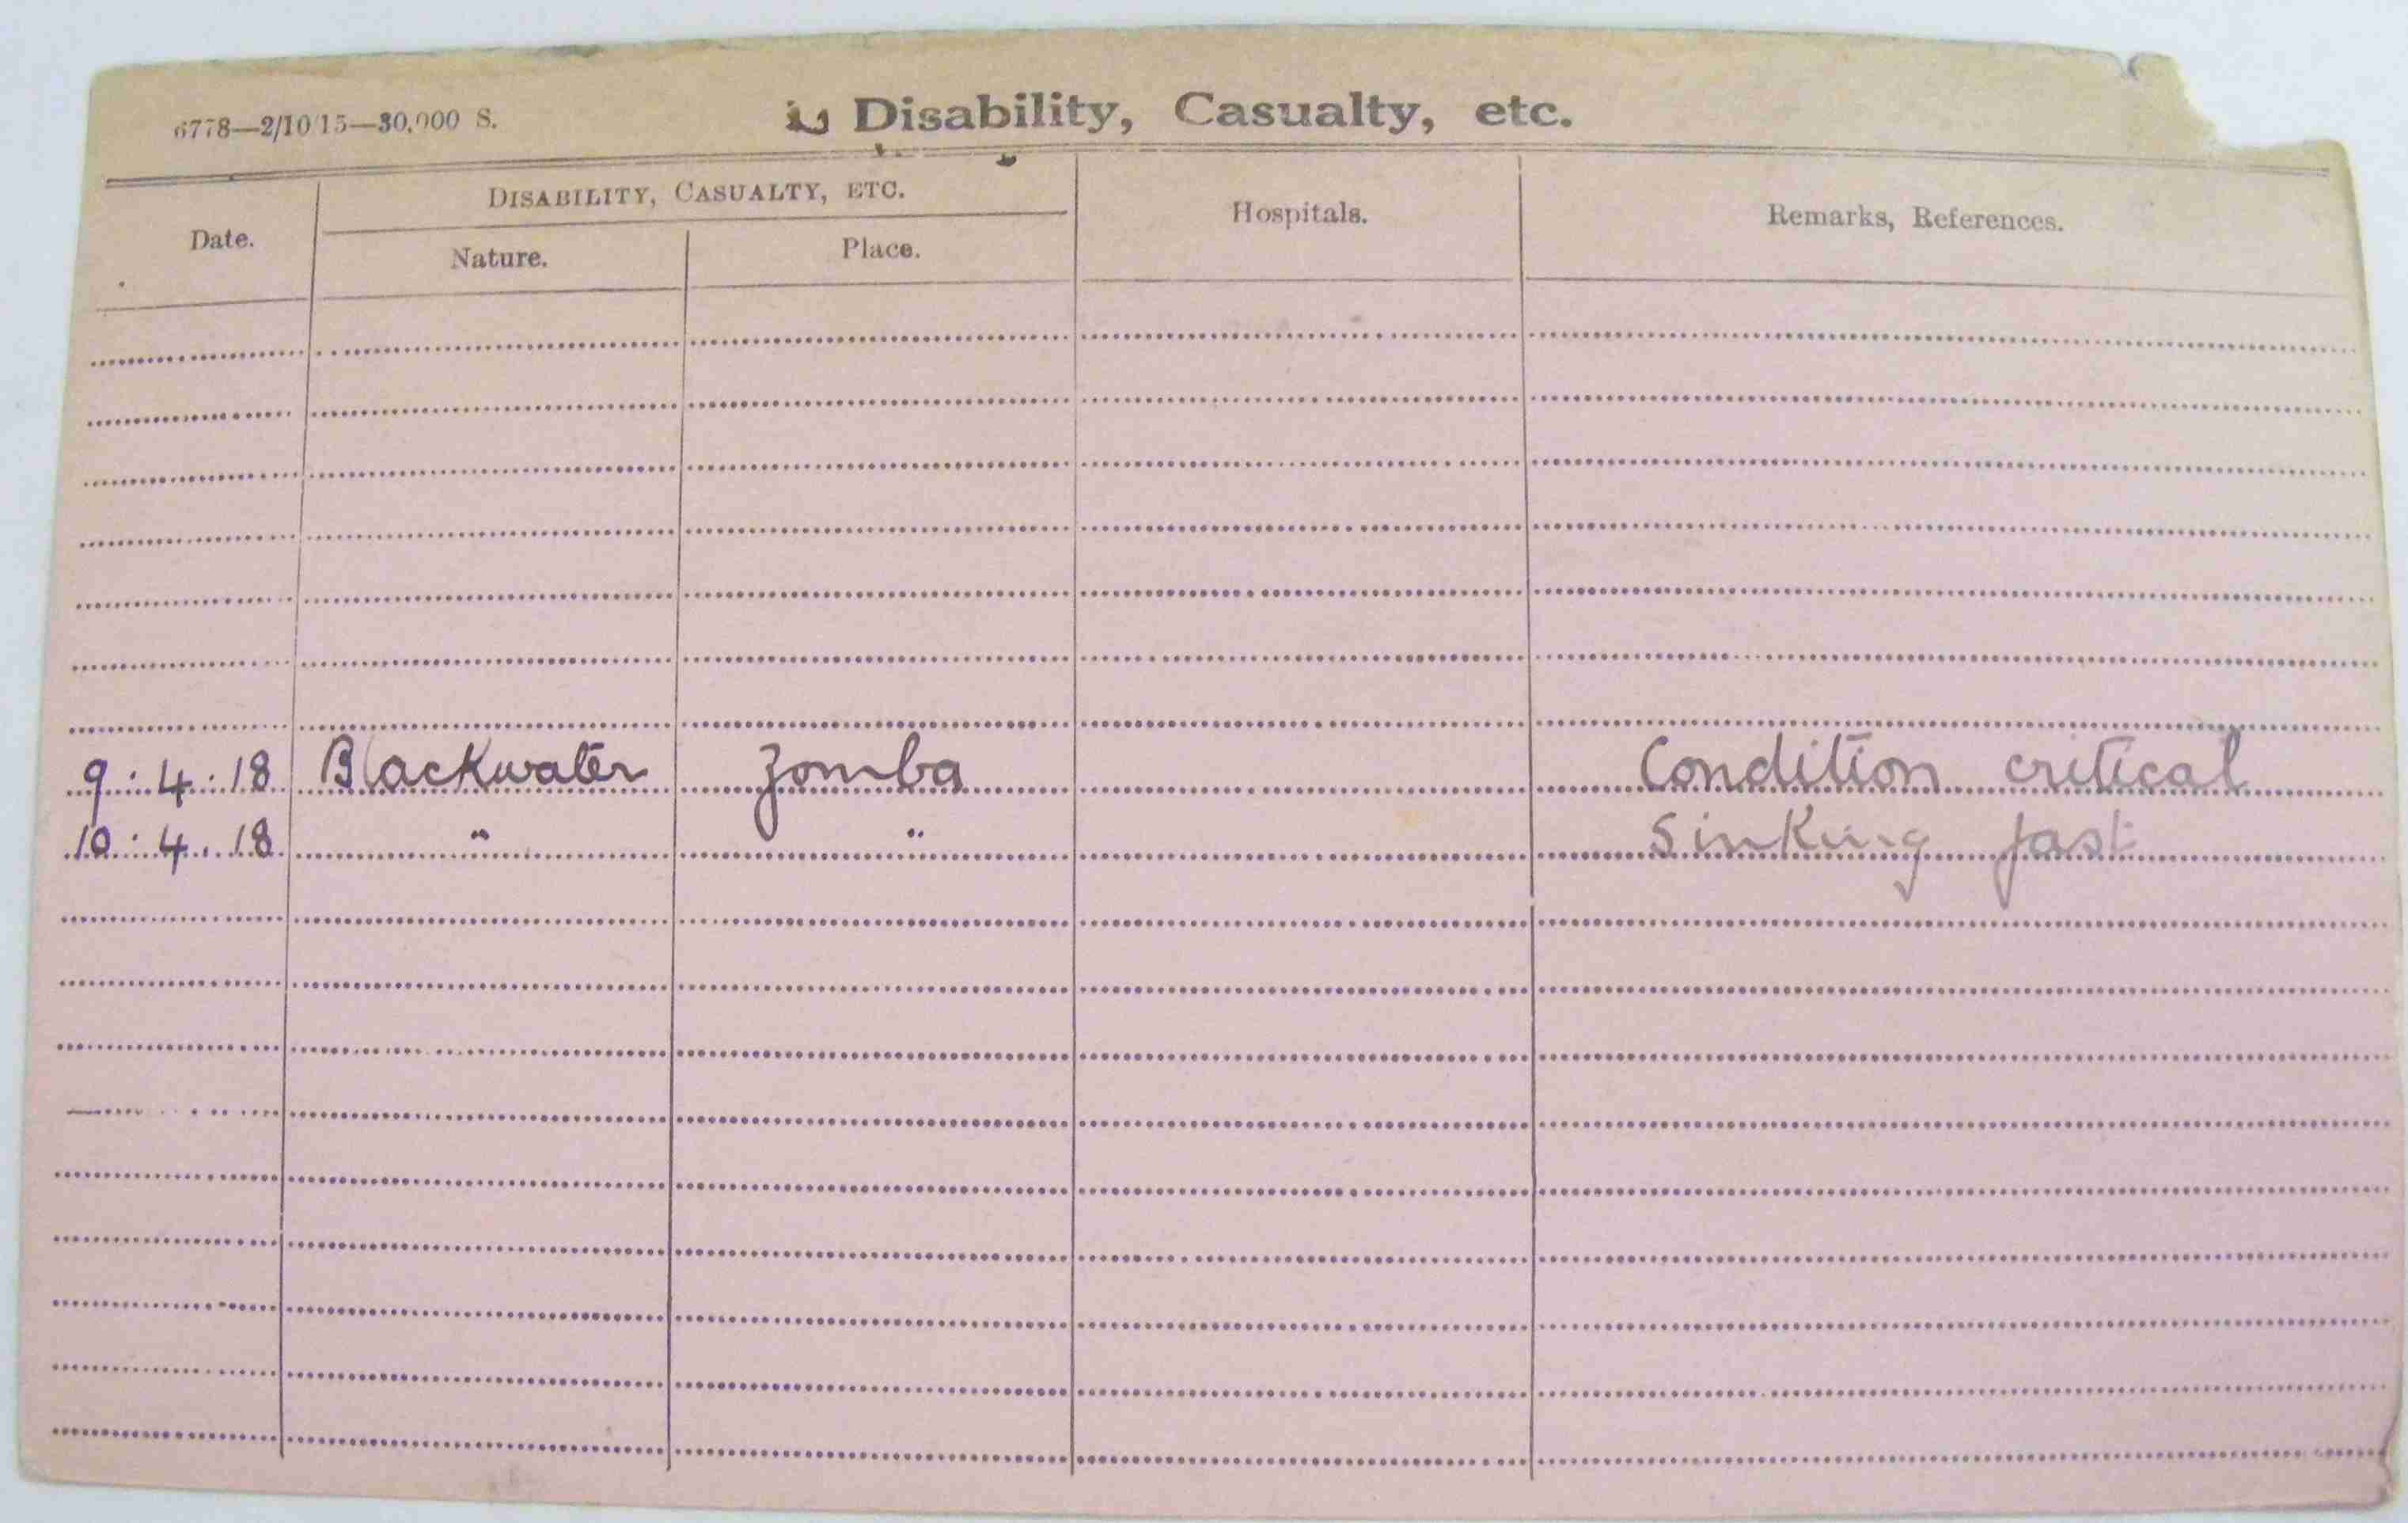 6778—2/10/15—30,000 S.
Disability, Casualty, etc.
DISABILITY, CASUALTY, ETC.
Date. Nature. Place. Hospitals. Remarks, References.
9:4:18 Blackwater Zomba Condition critical
10:4.18 " " Sinking fast